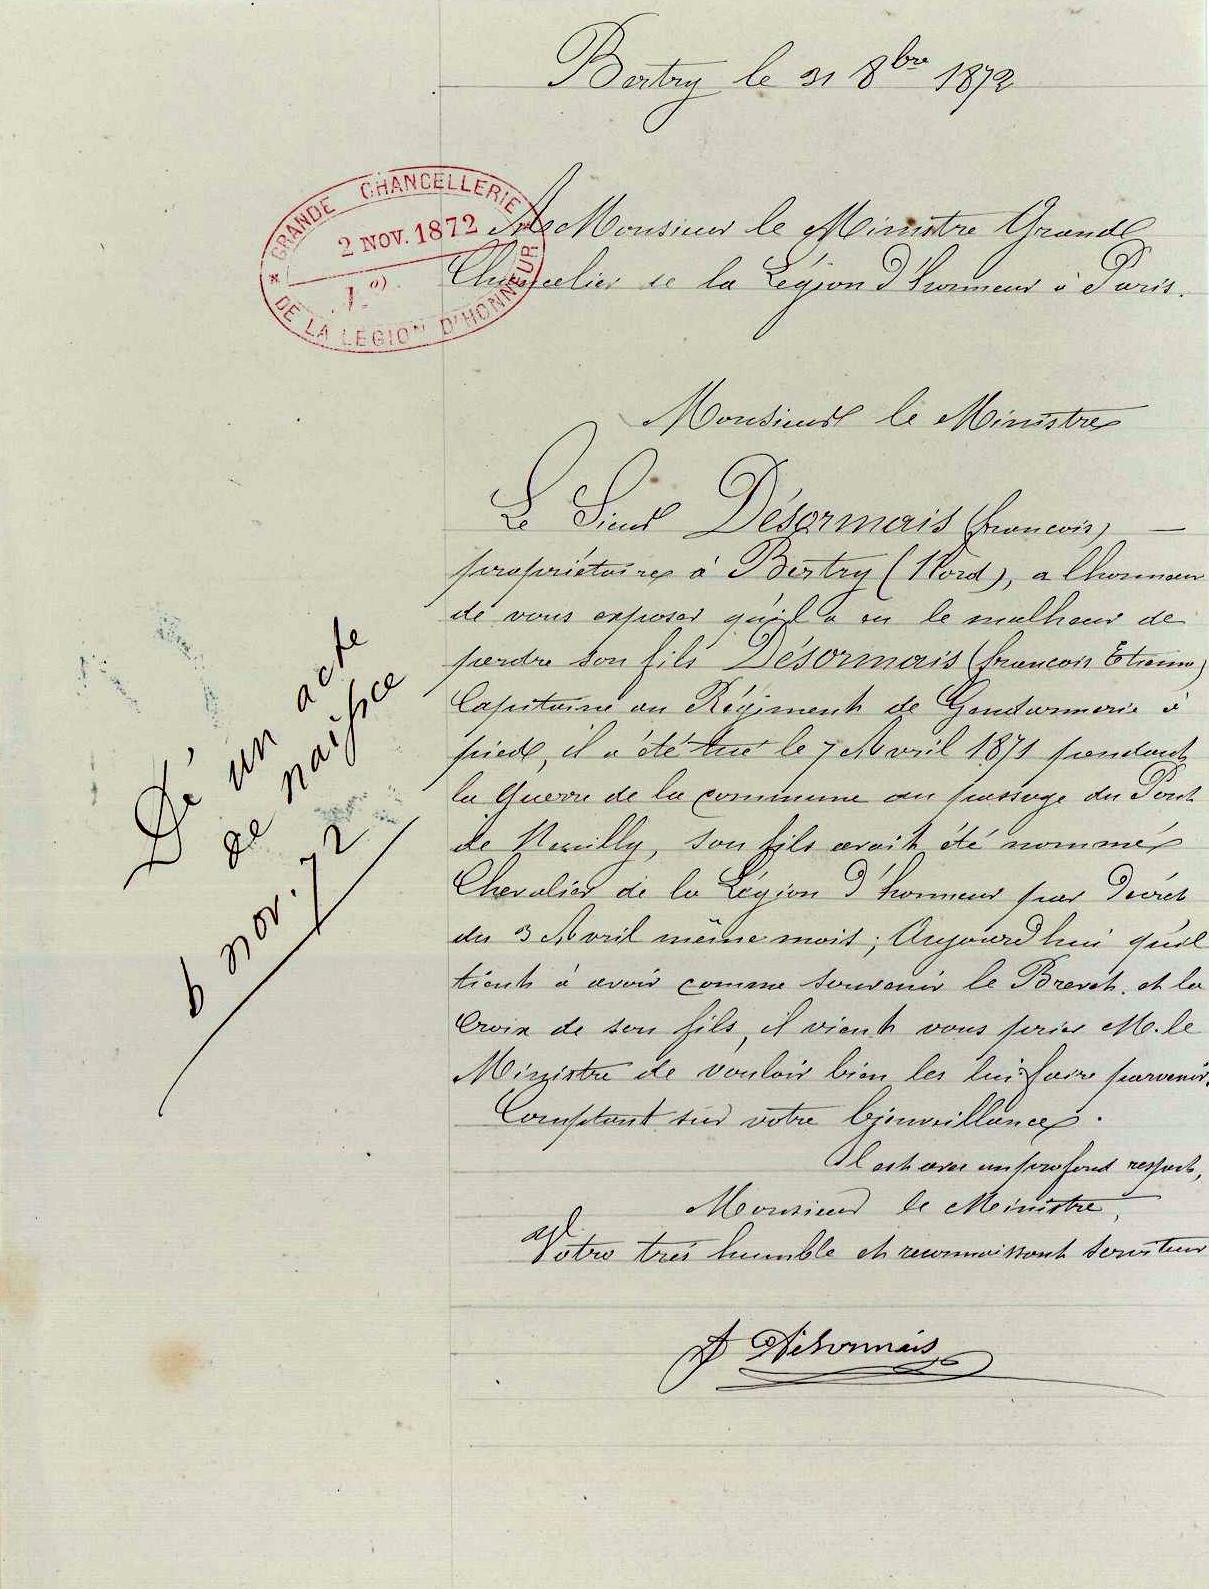 Bertry le 31 8bre 1872
GRANDE CHANCELLERIE
2 NOV. 1872
DE LA LEGION D'HONNEUR
A Monsieur le Ministre Grand
Chancelier de la Légion d'honneur à Paris.
Monsieur le Ministre
Le Sieur Désormais (françois) —
propriétaire à Bertry (Nord), a lhonneur
de vous exposer qu'il a eu le malheur de
perdre son fils Désormais (françois Etienne)
Capitaine au Régiment de Gendarmerie à
pied, il a été tué le 7 Avril 1871 pendant
la Guerre de la commune au passage du Pont
de Neuilly, son fils avait été nommé
Chevalier de la Légion d'honneur par Décret
du 3 Avril même mois; Aujourd'hui qu'il
tient à avoir comme souvenir le Brevet et la
Croix de son fils, il vient vous prier M. le
Ministre de vouloir bien les lui faire parvenir.
Comptant sur votre bienveillance.
Il est avec un profond respect,
Monsieur le Ministre,
Votre très humble et reconnaissant serviteur
f Désormais
Dé un acte
de naissce
6 nov. 72